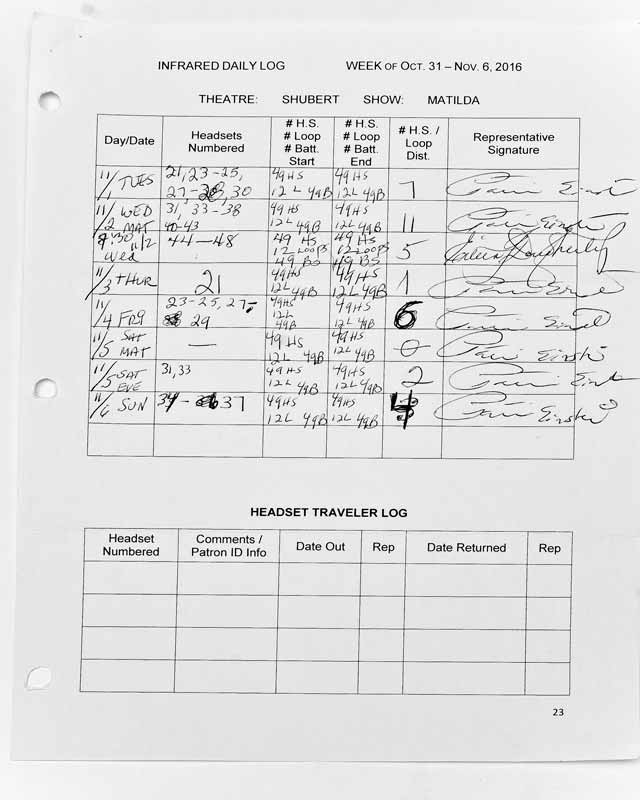 INFRARED DAILY LOG WEEK OF OCT. 31 – NOV. 6, 2016
THEATRE: SHUBERT SHOW: MATILDA
Day/Date
Headsets
Numbered
# H.S.
# Loop
# Batt.
Start
# H.S.
# Loop
# Batt.
End
# H.S. /
Loop
Dist.
Representative
Signature
11/1 TUES
21, 23-25,
27- , 30
49HS
12 L 49B
49HS
12L 49B
7
11/2 WED MAT
31, 33-38
40-43
49HS
12L 49B
49HS
12L 49B
11
11/2
Wed
44-48
49 HS
12 LOOPS
49 BS
49 HS
12 LOOPS
49 BS
5
11/3 THUR
21
49HS
12L 49B
49HS
12L 49B
1
11/4 FRI
23-25, 27,
29
49HS
12L
49B
49HS
12L
49B
6
11/5 SAT MAT
—
49HS
12L 49B
49HS
12L 49B
0
11/5 SAT EVE
31,33
49HS
12L 49B
49HS
12L 49B
2
11/6 SUN
34- 37
49HS
12L 49B
49HS
12L 49B
4
HEADSET TRAVELER LOG
Headset
Numbered
Comments /
Patron ID Info
Date Out
Rep
Date Returned
Rep
23